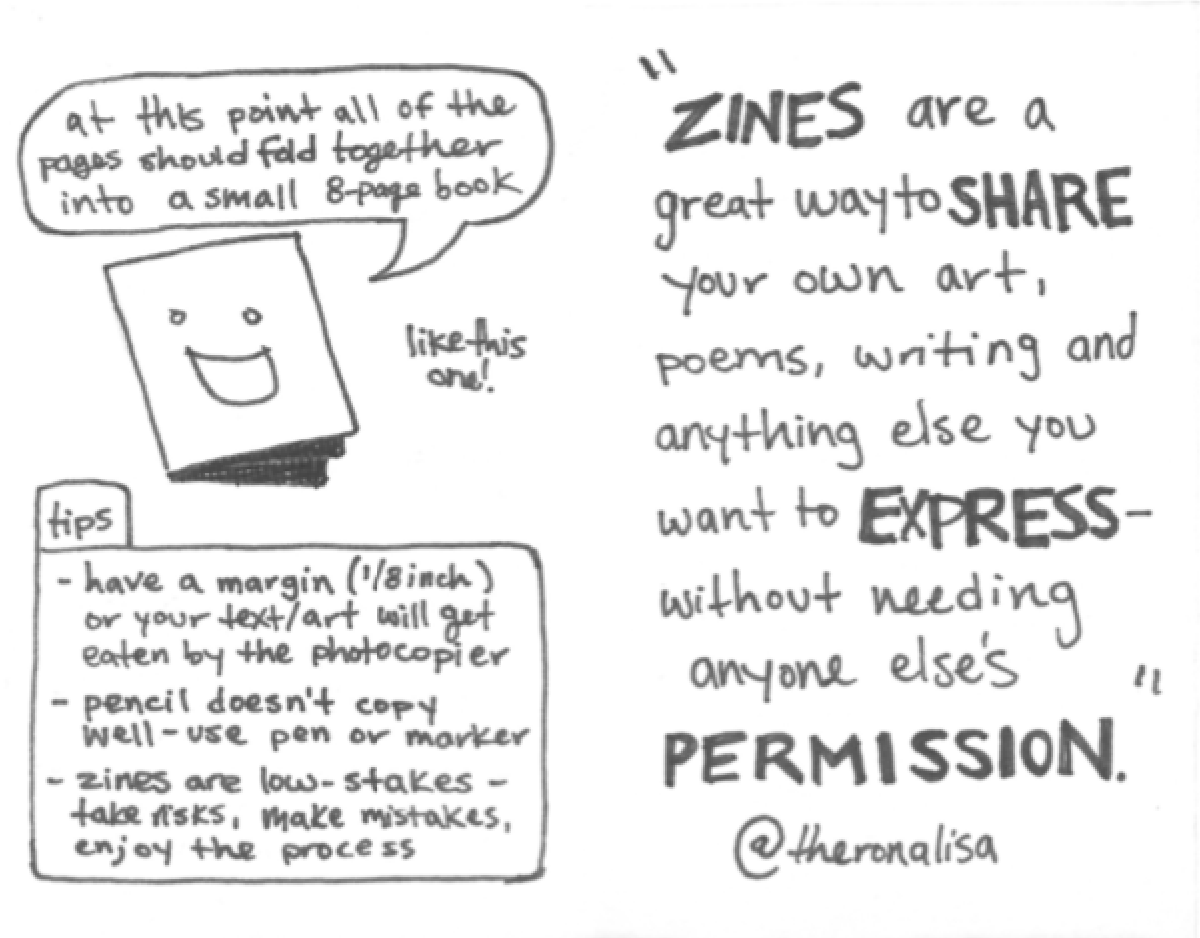 at this point all of the
pages should fold together
into a small 8-page book
like this
one!
tips
- have a margin (1/8 inch)
or your text/art will get
eaten by the photocopier
- pencil doesn't copy
well - use pen or marker
- zines are low-stakes -
take risks, make mistakes,
enjoy the process
"ZINES are a
great way to SHARE
your own art,
poems, writing and
anything else you
want to EXPRESS-
without needing
anyone else's "
PERMISSION.
@theronalisa